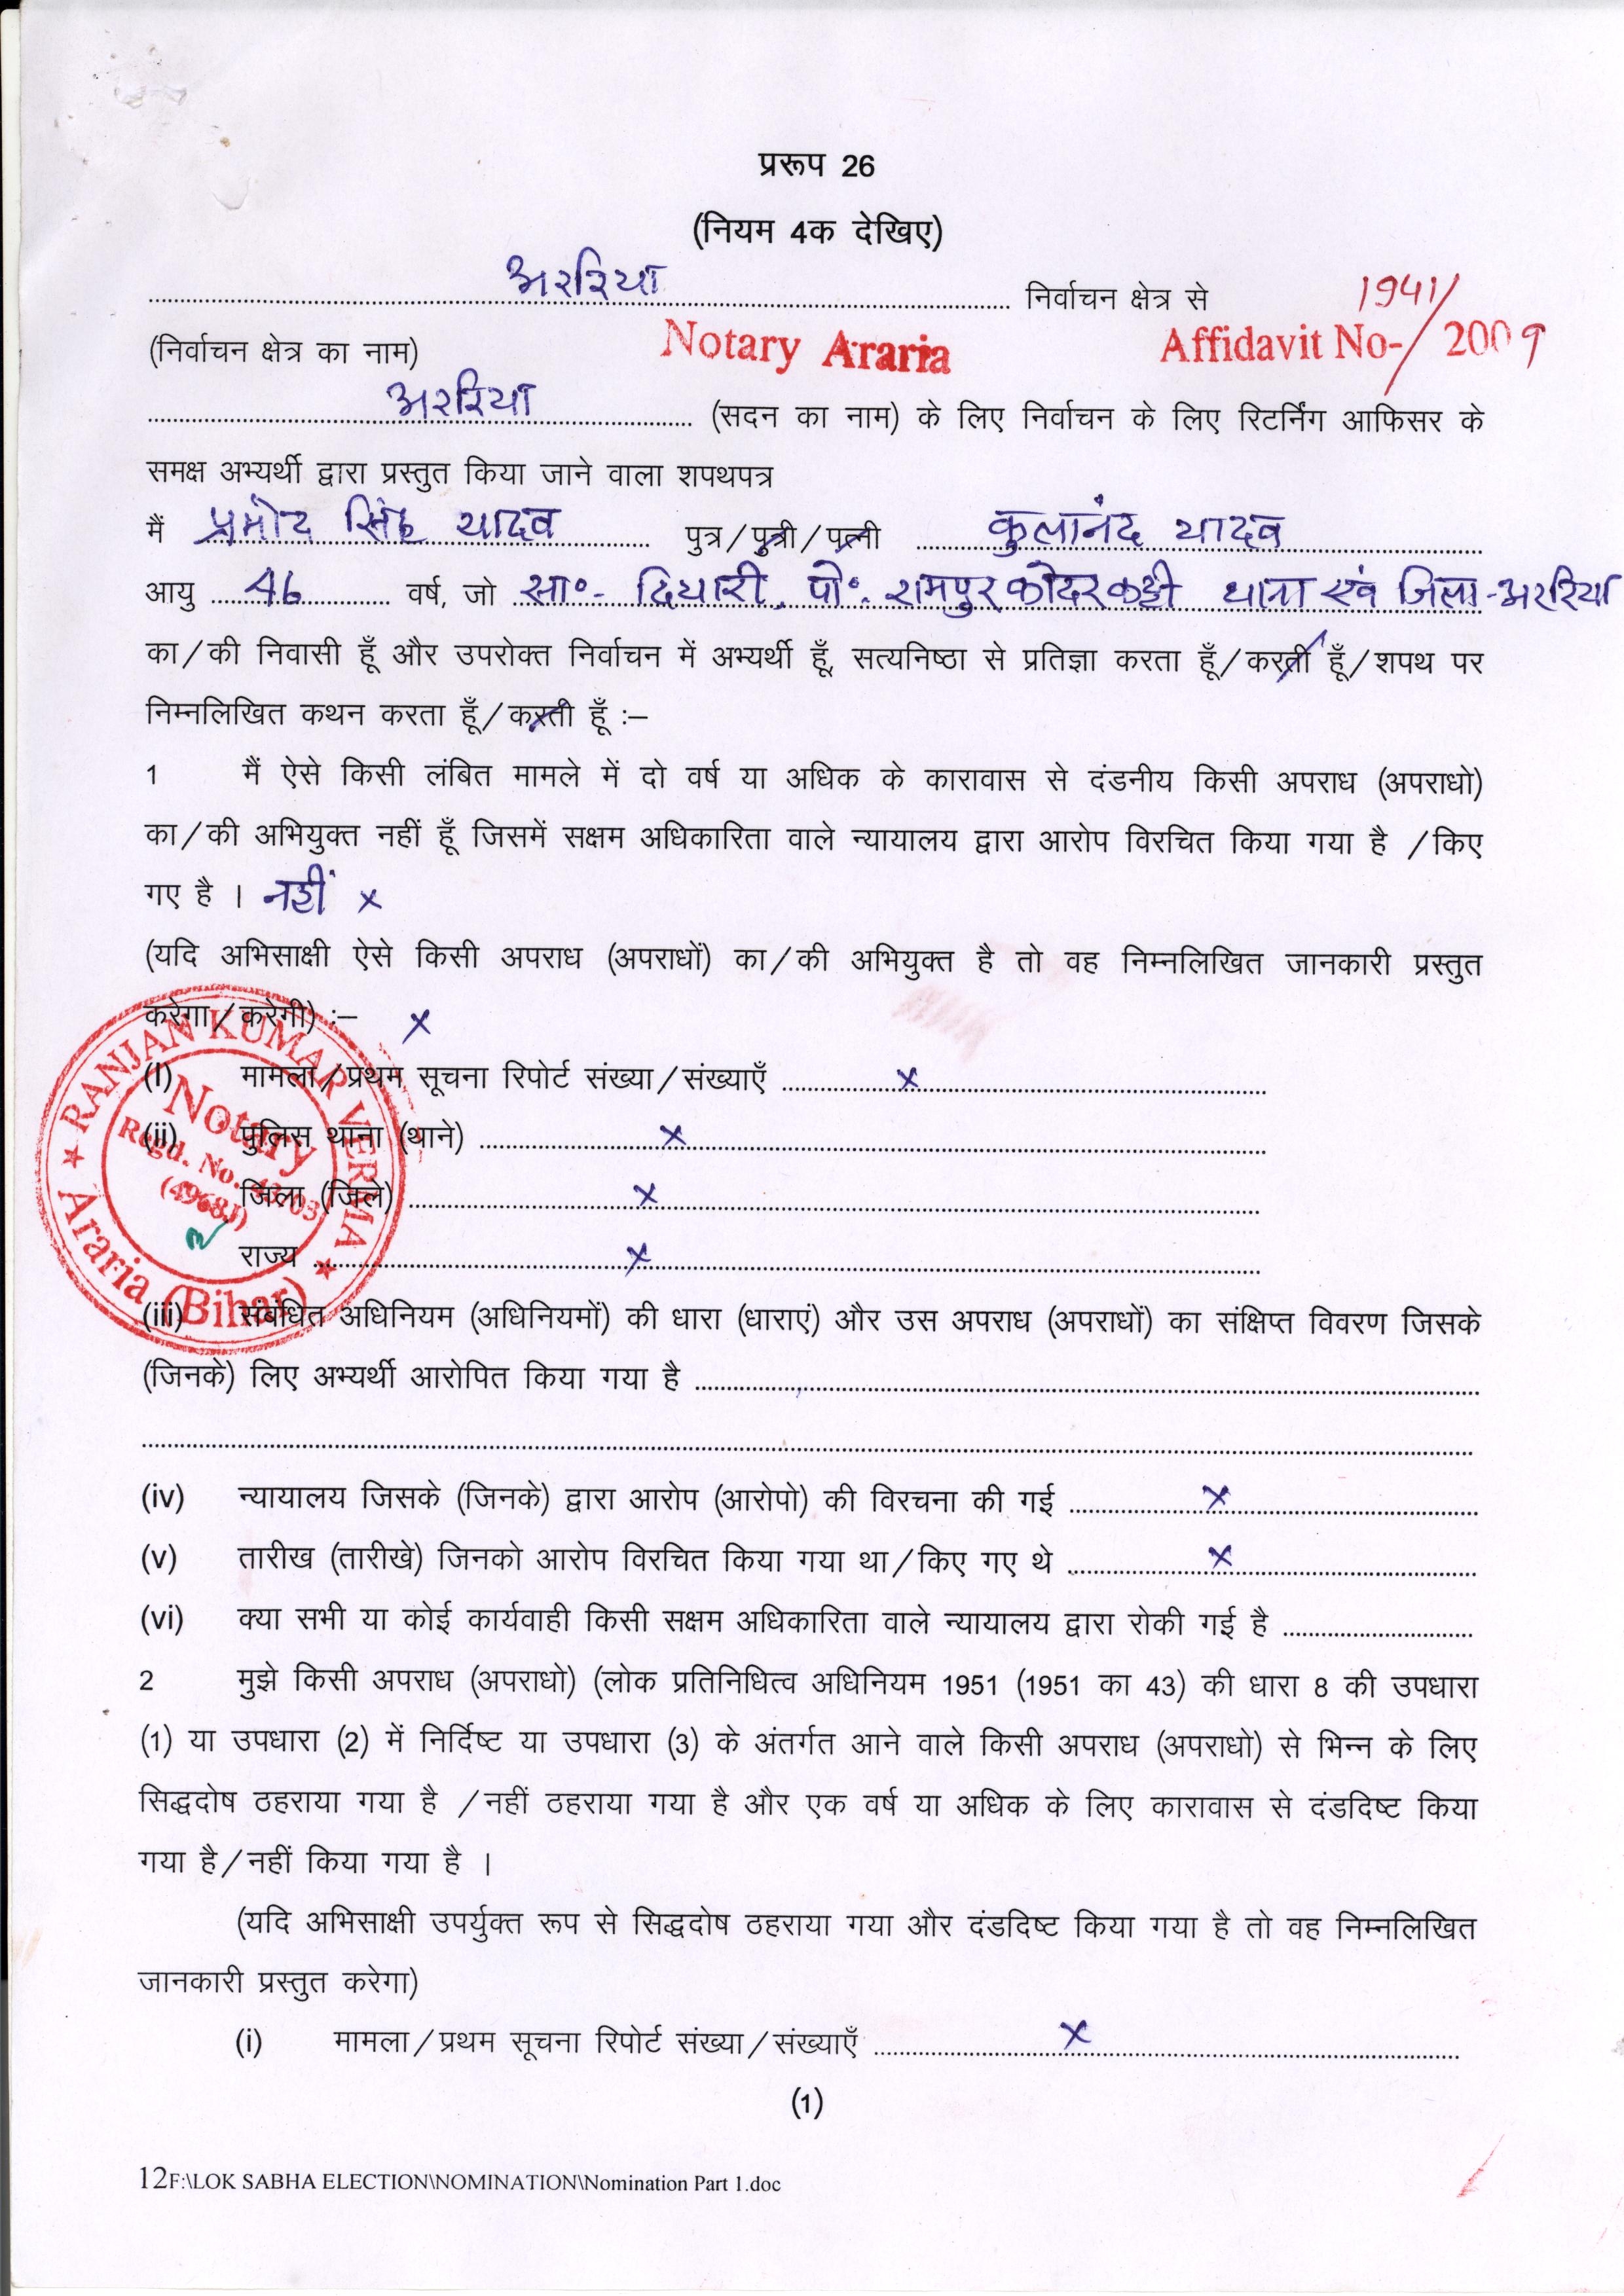 प्ररूप 26
(नियम 4क देखिए)
अररिया निर्वाचन क्षेत्र से
1941/
(निर्वाचन क्षेत्र का नाम) Notary Araria Affidavit No-/2009
अररिया (सदन का नाम) के लिए निर्वाचन के लिए रिटर्निंग आफिसर के
समक्ष अभ्यर्थी द्वारा प्रस्तुत किया जाने वाला शपथपत्र
मैं प्रमोद सिंह यादव पुत्र/पुत्री/पत्नी कुलानंद यादव
आयु 46 वर्ष, जो सा०- दियारी, पो०- रामपुर कोदरकट्टी थाना एवं जिला-अररिया
का/की निवासी हूँ और उपरोक्त निर्वाचन में अभ्यर्थी हूँ, सत्यनिष्ठा से प्रतिज्ञा करता हूँ/करती हूँ/शपथ पर
निम्नलिखित कथन करता हूँ/करती हूँ :–
1 मैं ऐसे किसी लंबित मामले में दो वर्ष या अधिक के कारावास से दंडनीय किसी अपराध (अपराधो)
का/की अभियुक्त नहीं हूँ जिसमें सक्षम अधिकारिता वाले न्यायालय द्वारा आरोप विरचित किया गया है /किए
गए है । नहीं x
(यदि अभिसाक्षी ऐसे किसी अपराध (अपराधों) का/की अभियुक्त है तो वह निम्नलिखित जानकारी प्रस्तुत
करेगा/करेगी) :– x
(I) मामला/प्रथम सूचना रिपोर्ट संख्या/संख्याएँ x
(ii) पुलिस थाना (थाने) x
जिला (जिले) x
राज्य x
RANJAN KUMAR VERMA
Notary
Regd. No.
(4968J)
Araria (Bihar)
(iii) संबंधित अधिनियम (अधिनियमों) की धारा (धाराएं) और उस अपराध (अपराधों) का संक्षिप्त विवरण जिसके
(जिनके) लिए अभ्यर्थी आरोपित किया गया है
(iv) न्यायालय जिसके (जिनके) द्वारा आरोप (आरोपो) की विरचना की गई x
(v) तारीख (तारीखे) जिनको आरोप विरचित किया गया था/किए गए थे x
(vi) क्या सभी या कोई कार्यवाही किसी सक्षम अधिकारिता वाले न्यायालय द्वारा रोकी गई है
2 मुझे किसी अपराध (अपराधो) (लोक प्रतिनिधित्व अधिनियम 1951 (1951 का 43) की धारा 8 की उपधारा
(1) या उपधारा (2) में निर्दिष्ट या उपधारा (3) के अंतर्गत आने वाले किसी अपराध (अपराधो) से भिन्न के लिए
सिद्धदोष ठहराया गया है /नहीं ठहराया गया है और एक वर्ष या अधिक के लिए कारावास से दंडदिष्ट किया
गया है/नहीं किया गया है ।
(यदि अभिसाक्षी उपर्युक्त रूप से सिद्धदोष ठहराया गया और दंडदिष्ट किया गया है तो वह निम्नलिखित
जानकारी प्रस्तुत करेगा)
(i) मामला/प्रथम सूचना रिपोर्ट संख्या/संख्याएँ x
(1)
12F:\LOK SABHA ELECTION\NOMINATION\Nomination Part 1.doc